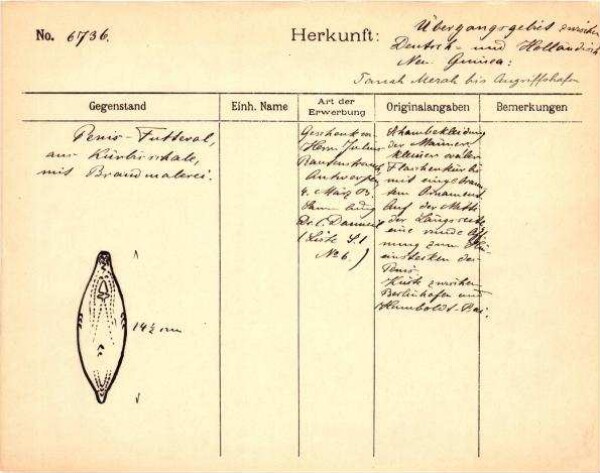 No. 6736.
Herkunft:
Übergangsgebiet zwischen
Deutsch- und Holländisch
Neu Guinea:
Tanah Merah bis Angriffshafen
Gegenstand
Einh. Name
Art der
Erwerbung
Originalangaben
Bemerkungen
Penis-Futteral,
aus Kürbisschale,
mit Brandmalerei.
14½ cm
Geschenk von
Herrn Julius
Antwerpen
4. März 03.
Dr.
(Liste S. 1
No 6.)
Schambekleidung
der Männer
kleiner ovaler
Flaschenkürbis
mit eingebrann-
tem Ornament
Auf der Mitte
der Längsseite
eine runde Öff-
nung zum Hin-
einstecken des
Penis.
Küste zwischen
Berlinhafen und
Humboldt-Bai.